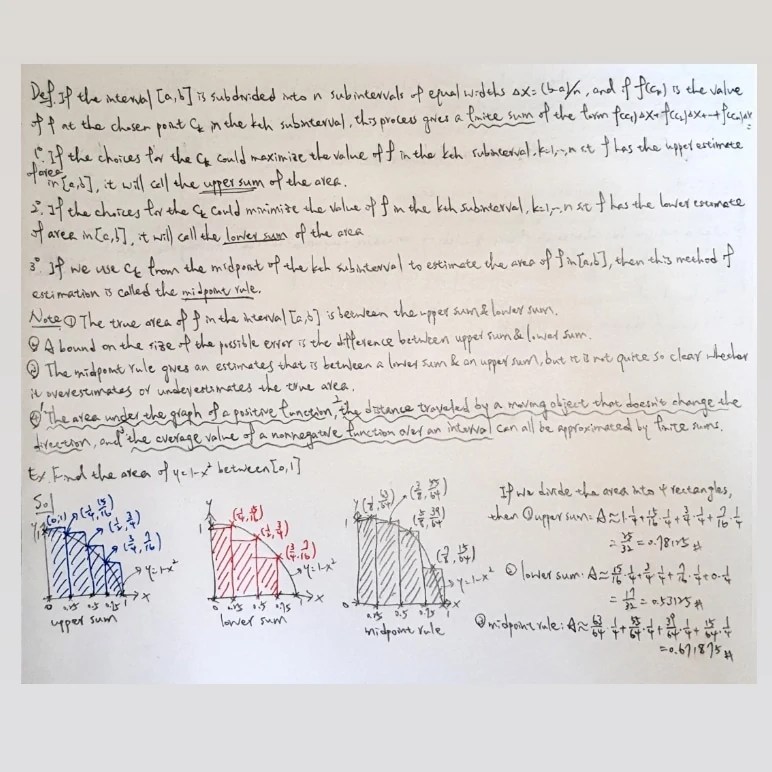 Def. If the interval [a,b] is subdivided into n subintervals of equal widths Δx=(b-a)/n, and if f(c_k) is the value
of f at the chosen point C_k in the kth subinterval, this process gives a finite sum of the form f(c₁)Δx+f(c₂)Δx+--+f(c_n)Δx
1°. If the choices for the C_k could maximize the value of f in the kth subinterval, k=1,--,n s.t f has the upper estimate
of area in [a,b], it will call the upper sum of the area.
2°. If the choices for the C_k could minimize the value of f in the kth subinterval, k=1,--,n s.t f has the lower estimate
of area in [a,b], it will call the lower sum of the area
3°. If we use C_k from the midpoint of the kth subinterval to estimate the area of f in [a,b], then this method of
estimation is called the midpoint rule.
Note ① The true area of f in the interval [a,b] is between the upper sum & lower sum.
② A bound on the size of the possible error is the difference between upper sum & lower sum.
③ The midpoint rule gives an estimates that is between a lower sum & an upper sum, but it is not quite so clear whether
it overestimates or underestimates the true area.
④ ¹The area under the graph of a positive function, ²the distance traveled by a moving object that doesn't change the
direction, and ³the average value of a nonnegative function over an interval can all be approximated by finite sums.
Ex. Find the area of y=1-x² between [0,1]
Sol
y
1
(0,1)
(1/4, 15/16)
(1/2, 3/4)
(3/4, 7/16)
y=1-x²
0 0.25 0.5 0.75 1 x
upper sum
y
1
(1/4, 15/16)
(1/2, 3/4)
(3/4, 7/16)
y=1-x²
0 0.25 0.5 0.75 1 x
lower sum
y
1
(1/8, 63/64)
(3/8, 55/64)
(5/8, 39/64)
(7/8, 15/64)
y=1-x²
0 0.25 0.5 0.75 1 x
midpoint rule
If we divide the area into 4 rectangles,
then ① upper sum: A≈1·1/4+15/16·1/4+3/4·1/4+7/16·1/4
=25/32=0.78125 #
② lower sum: A≈15/16·1/4+3/4·1/4+7/16·1/4+0·1/4
=17/32=0.53125 #
③ midpoint rule: A≈63/64·1/4+55/64·1/4+39/64·1/4+15/64·1/4
=0.671875 #